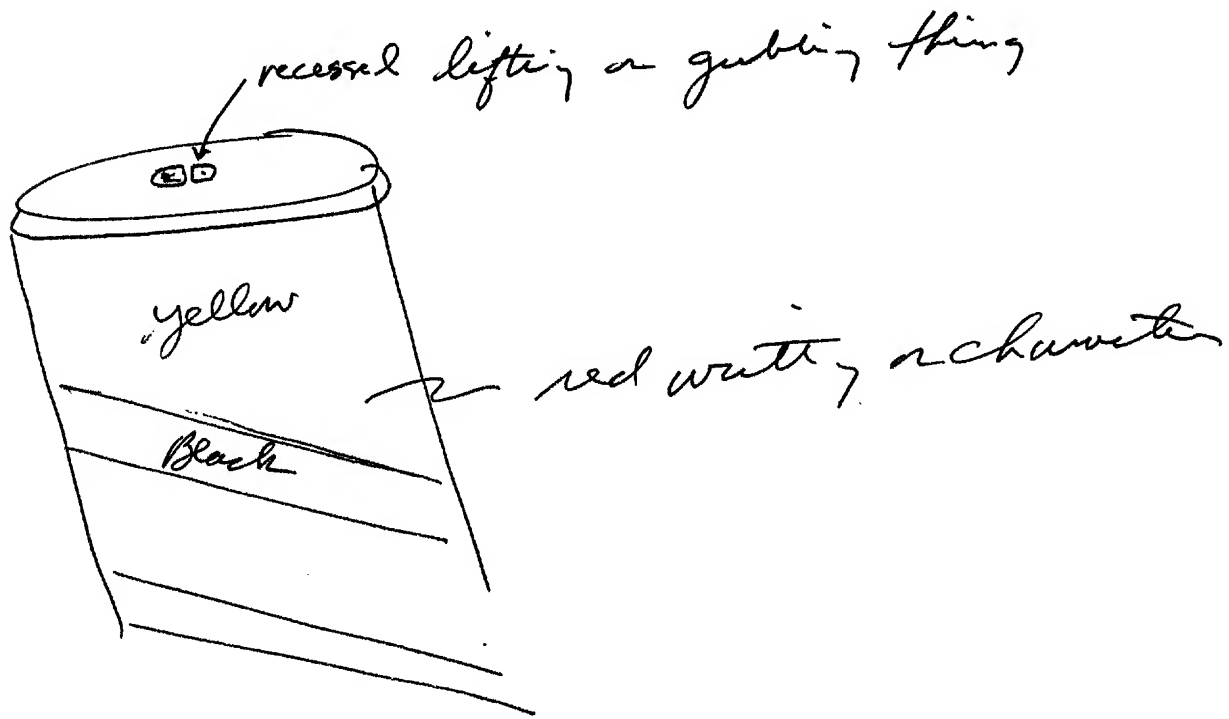 recessed lifting or grabbing thing
yellow
red writing or character
Black